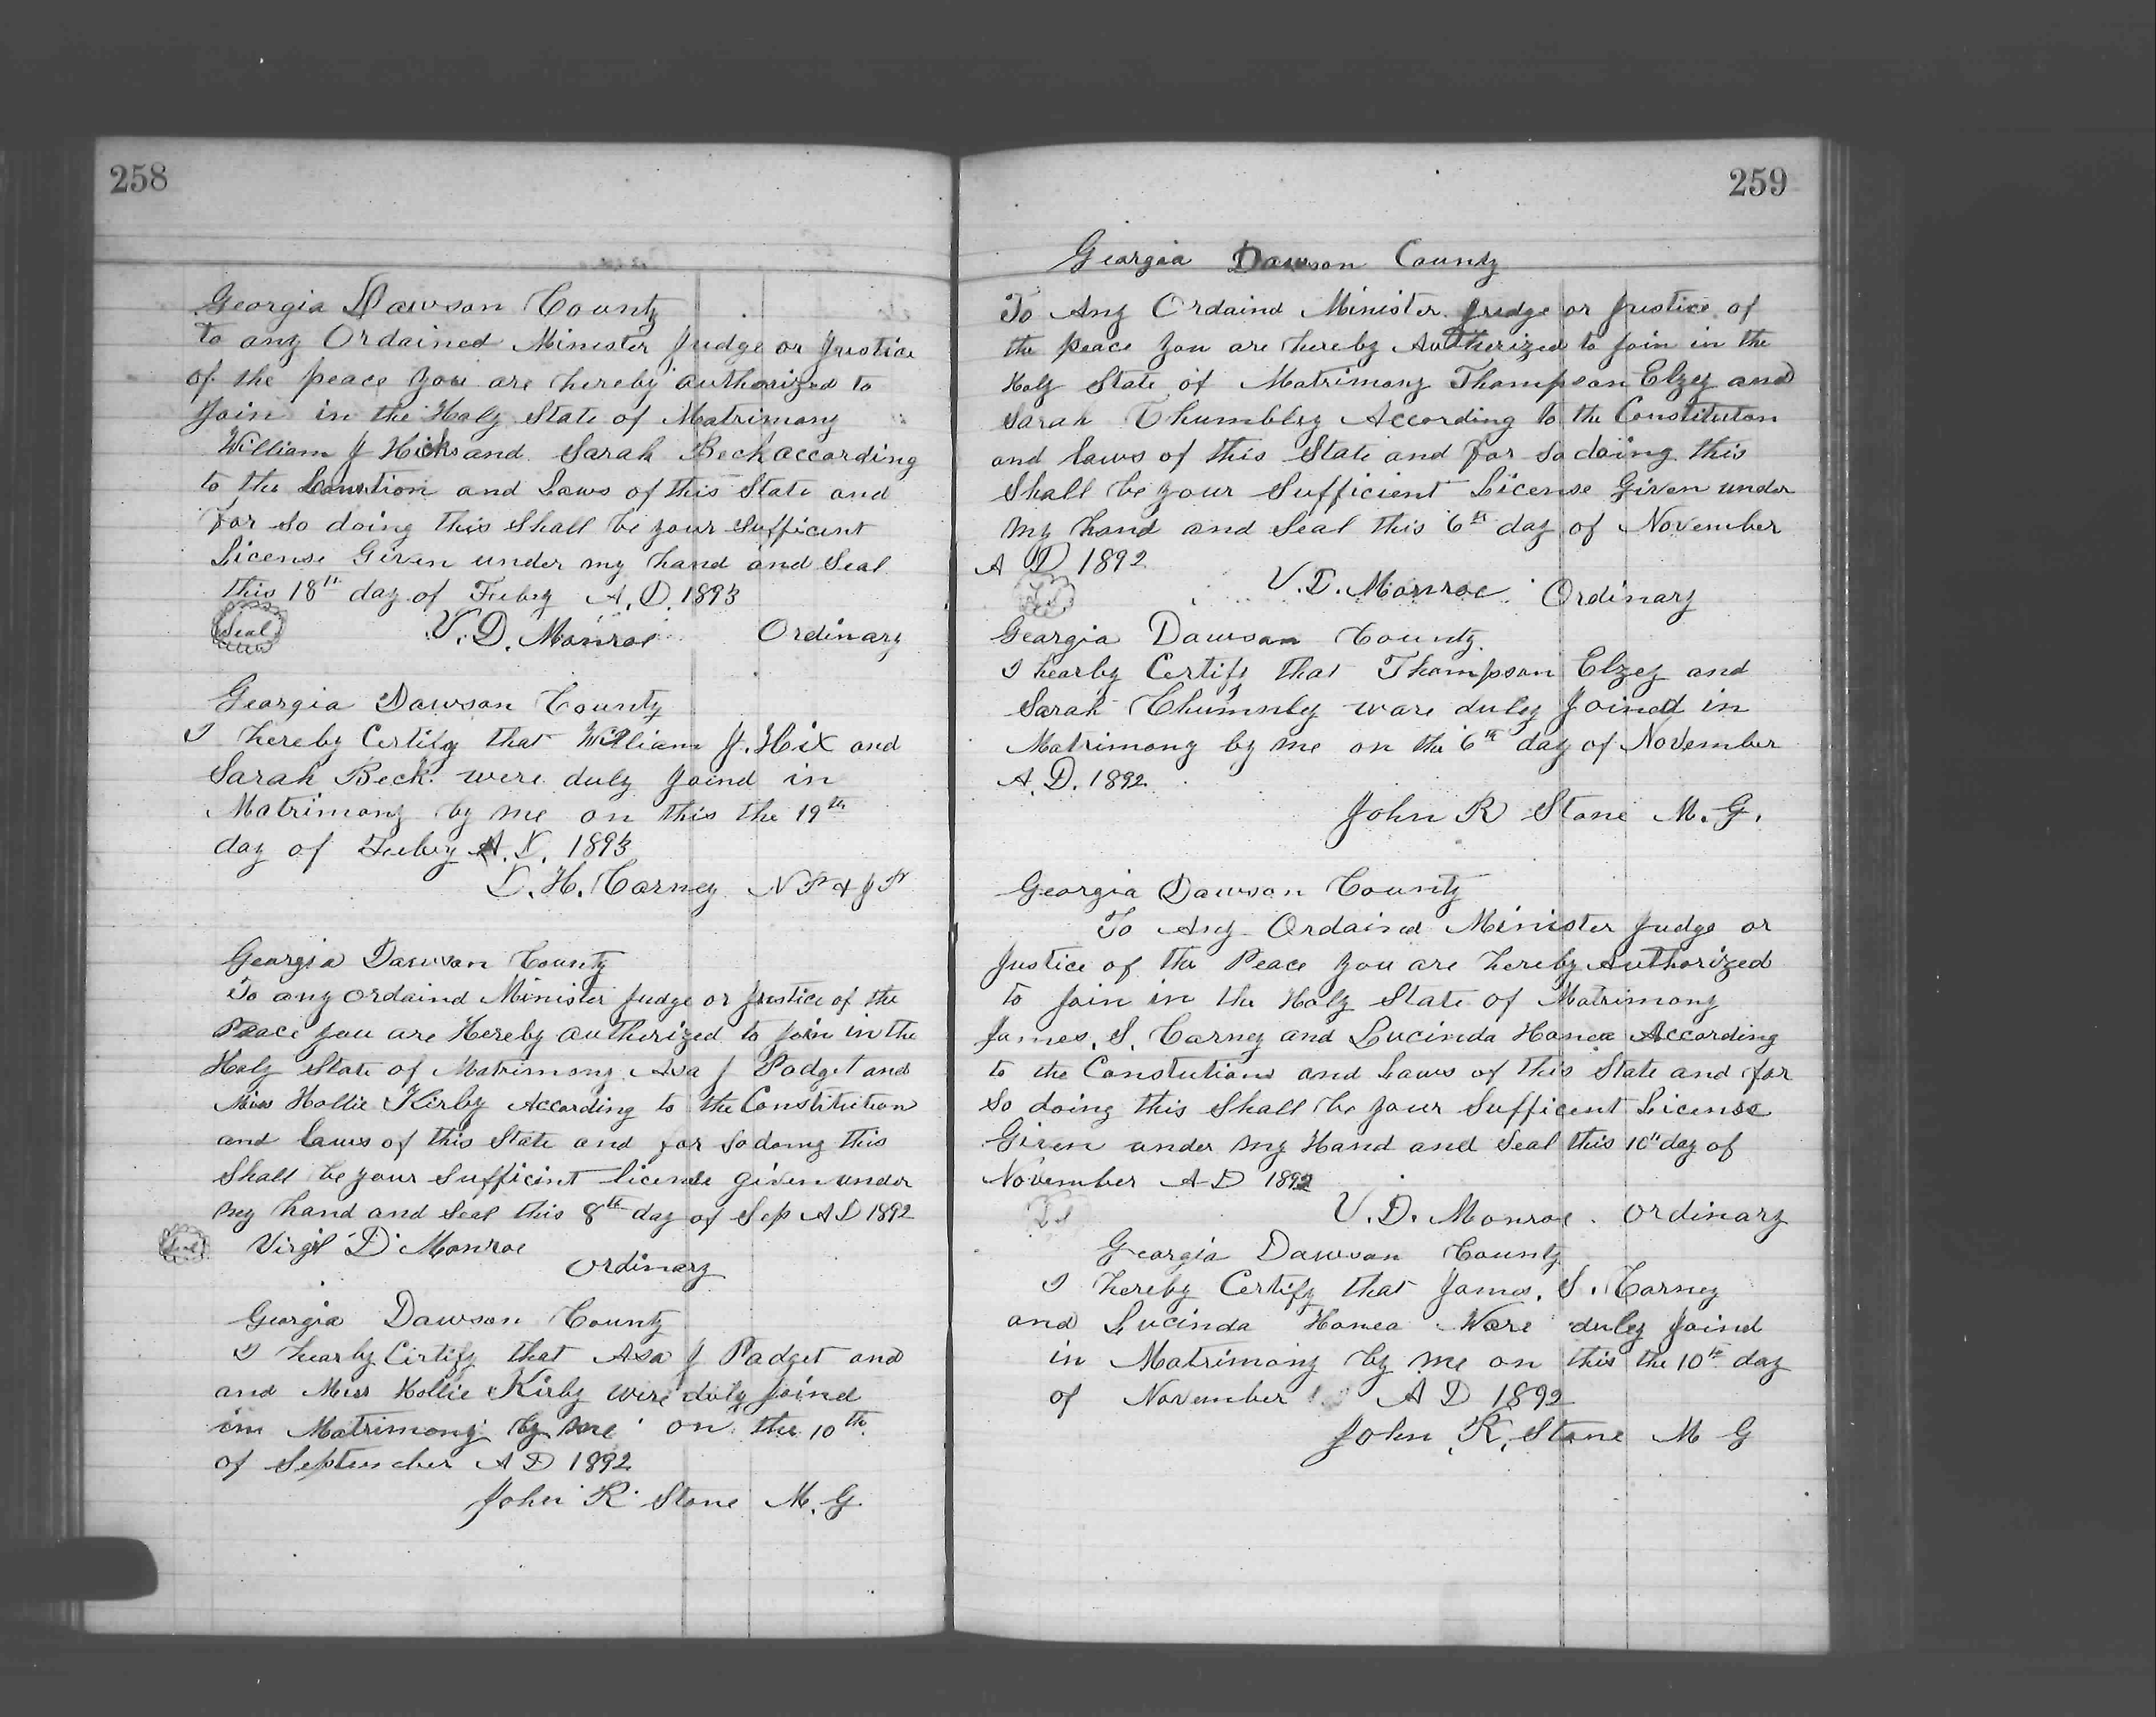 258
Georgia Dawson County
to any Ordained Minister Judge or Justice
of the peace you are hereby authorized to
Join in the Holy State of Matrimony
William J Hicks and Sarah Beck according
to the and Laws of this State and
for so doing this Shall be your Sufficent
License Given under my hand and Seal
this 18th day of Feby A. D. 1893
Seal V. D. Monroe Ordinary
Georgia Dawson County
I hereby Certify that William J. Hix and
Sarah Beck were duly Joind in
Matrimony by me on this the 19th
day of Feby A. D. 1893
D. H. Carney N P & J P
Georgia Dawson County
To any ordaind Minister Judge or Justice of the
Peace you are Hereby authorized to Join in the
Holy State of Matrimony Asa J Padget and
Miss Hollie Kirby According to the Constitution
and laws of this State and for so doing this
Shall be your Sufficint license given under
my hand and Seal this 8th day of Sep A D 1892
Seal Virgil D Monroe
Ordinary
Georgia Dawson County
I hearby Certify that Asa J Padget and
and Miss Hollie Kirby were duly Joind
in Matrimony by me on the 10th
of September A D 1892
John R Stone M. G.
259
Georgia Dawson County
To Any Ordaind Minister Judge or Justice of
the peace you are hereby Autherized to Join in the
Holy State of Matrimony Thompson Elzey and
Sarah Chumbley According to the Constituton
and laws of this State and for so doing this
Shall be your Sufficient License Given under
my hand and Seal this 6th day of November
A D 1892
L S V. D. Monroe Ordinary
Georgia Dawson County
I hearby Certify that Thompson Elzey and
Sarah Chumnley ware duley Joined in
Matrimony by me on the 6th day of November
A. D. 1892
John R Stone M. G.
Georgia Dawson County
To Any Ordained Minister Judge or
Justice of the Peace you are hereby Authorized
to Join in the Holy State of Matrimony
James. S. Carney and Lucinda Honea According
to the Constutions and Laws of this State and for
So doing this Shall be your Sufficent License
Given under my Hand and Seal this 10th day of
November A D 1892
L S V. D. Monroe Ordinary
Georgia Dawson County
I hereby Certify that James. S. Carney
and Lucinda Honea Ware duley Joind
in Matrimony by me on this the 10th day
of November A D 1892
John R. Stone M G